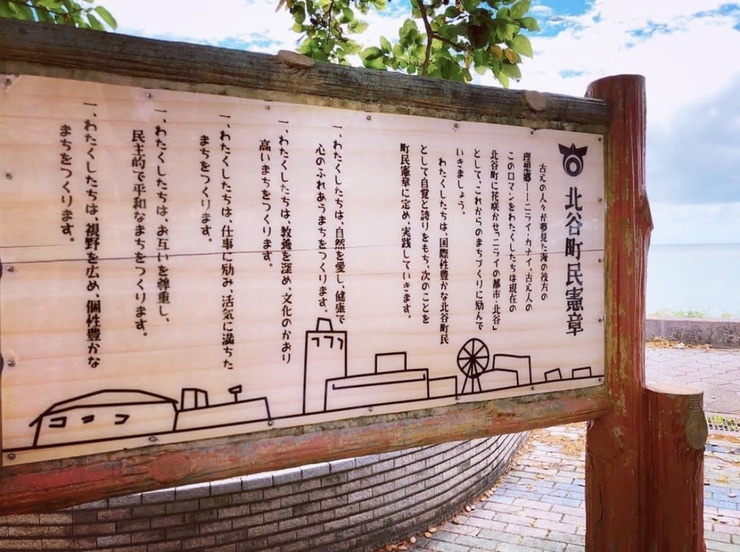 北谷町民憲章
古えの人々が夢見た海の彼方の
理想郷――ニライ・カナイ。古え人の
このロマンをわたくしたちは現在の
北谷町に花咲かせ、「ニライの都市・北谷」
として、これからのまちづくりに励んで
いきましょう。
わたくしたちは、国際性豊かな北谷町民
として自覚と誇りをもち、次のことを
町民憲章に定め、実践していきます。
一、わたくしたちは、自然を愛し、健康で
心のふれあうまちをつくります。
一、わたくしたちは、教養を深め、文化のかおり
高いまちをつくります。
一、わたくしたちは、仕事に励み、活気に満ちた
まちをつくります。
一、わたくしたちは、お互いを尊重し、
民主的で平和なまちをつくります。
一、わたくしたちは、視野を広め、個性豊かな
まちをつくります。